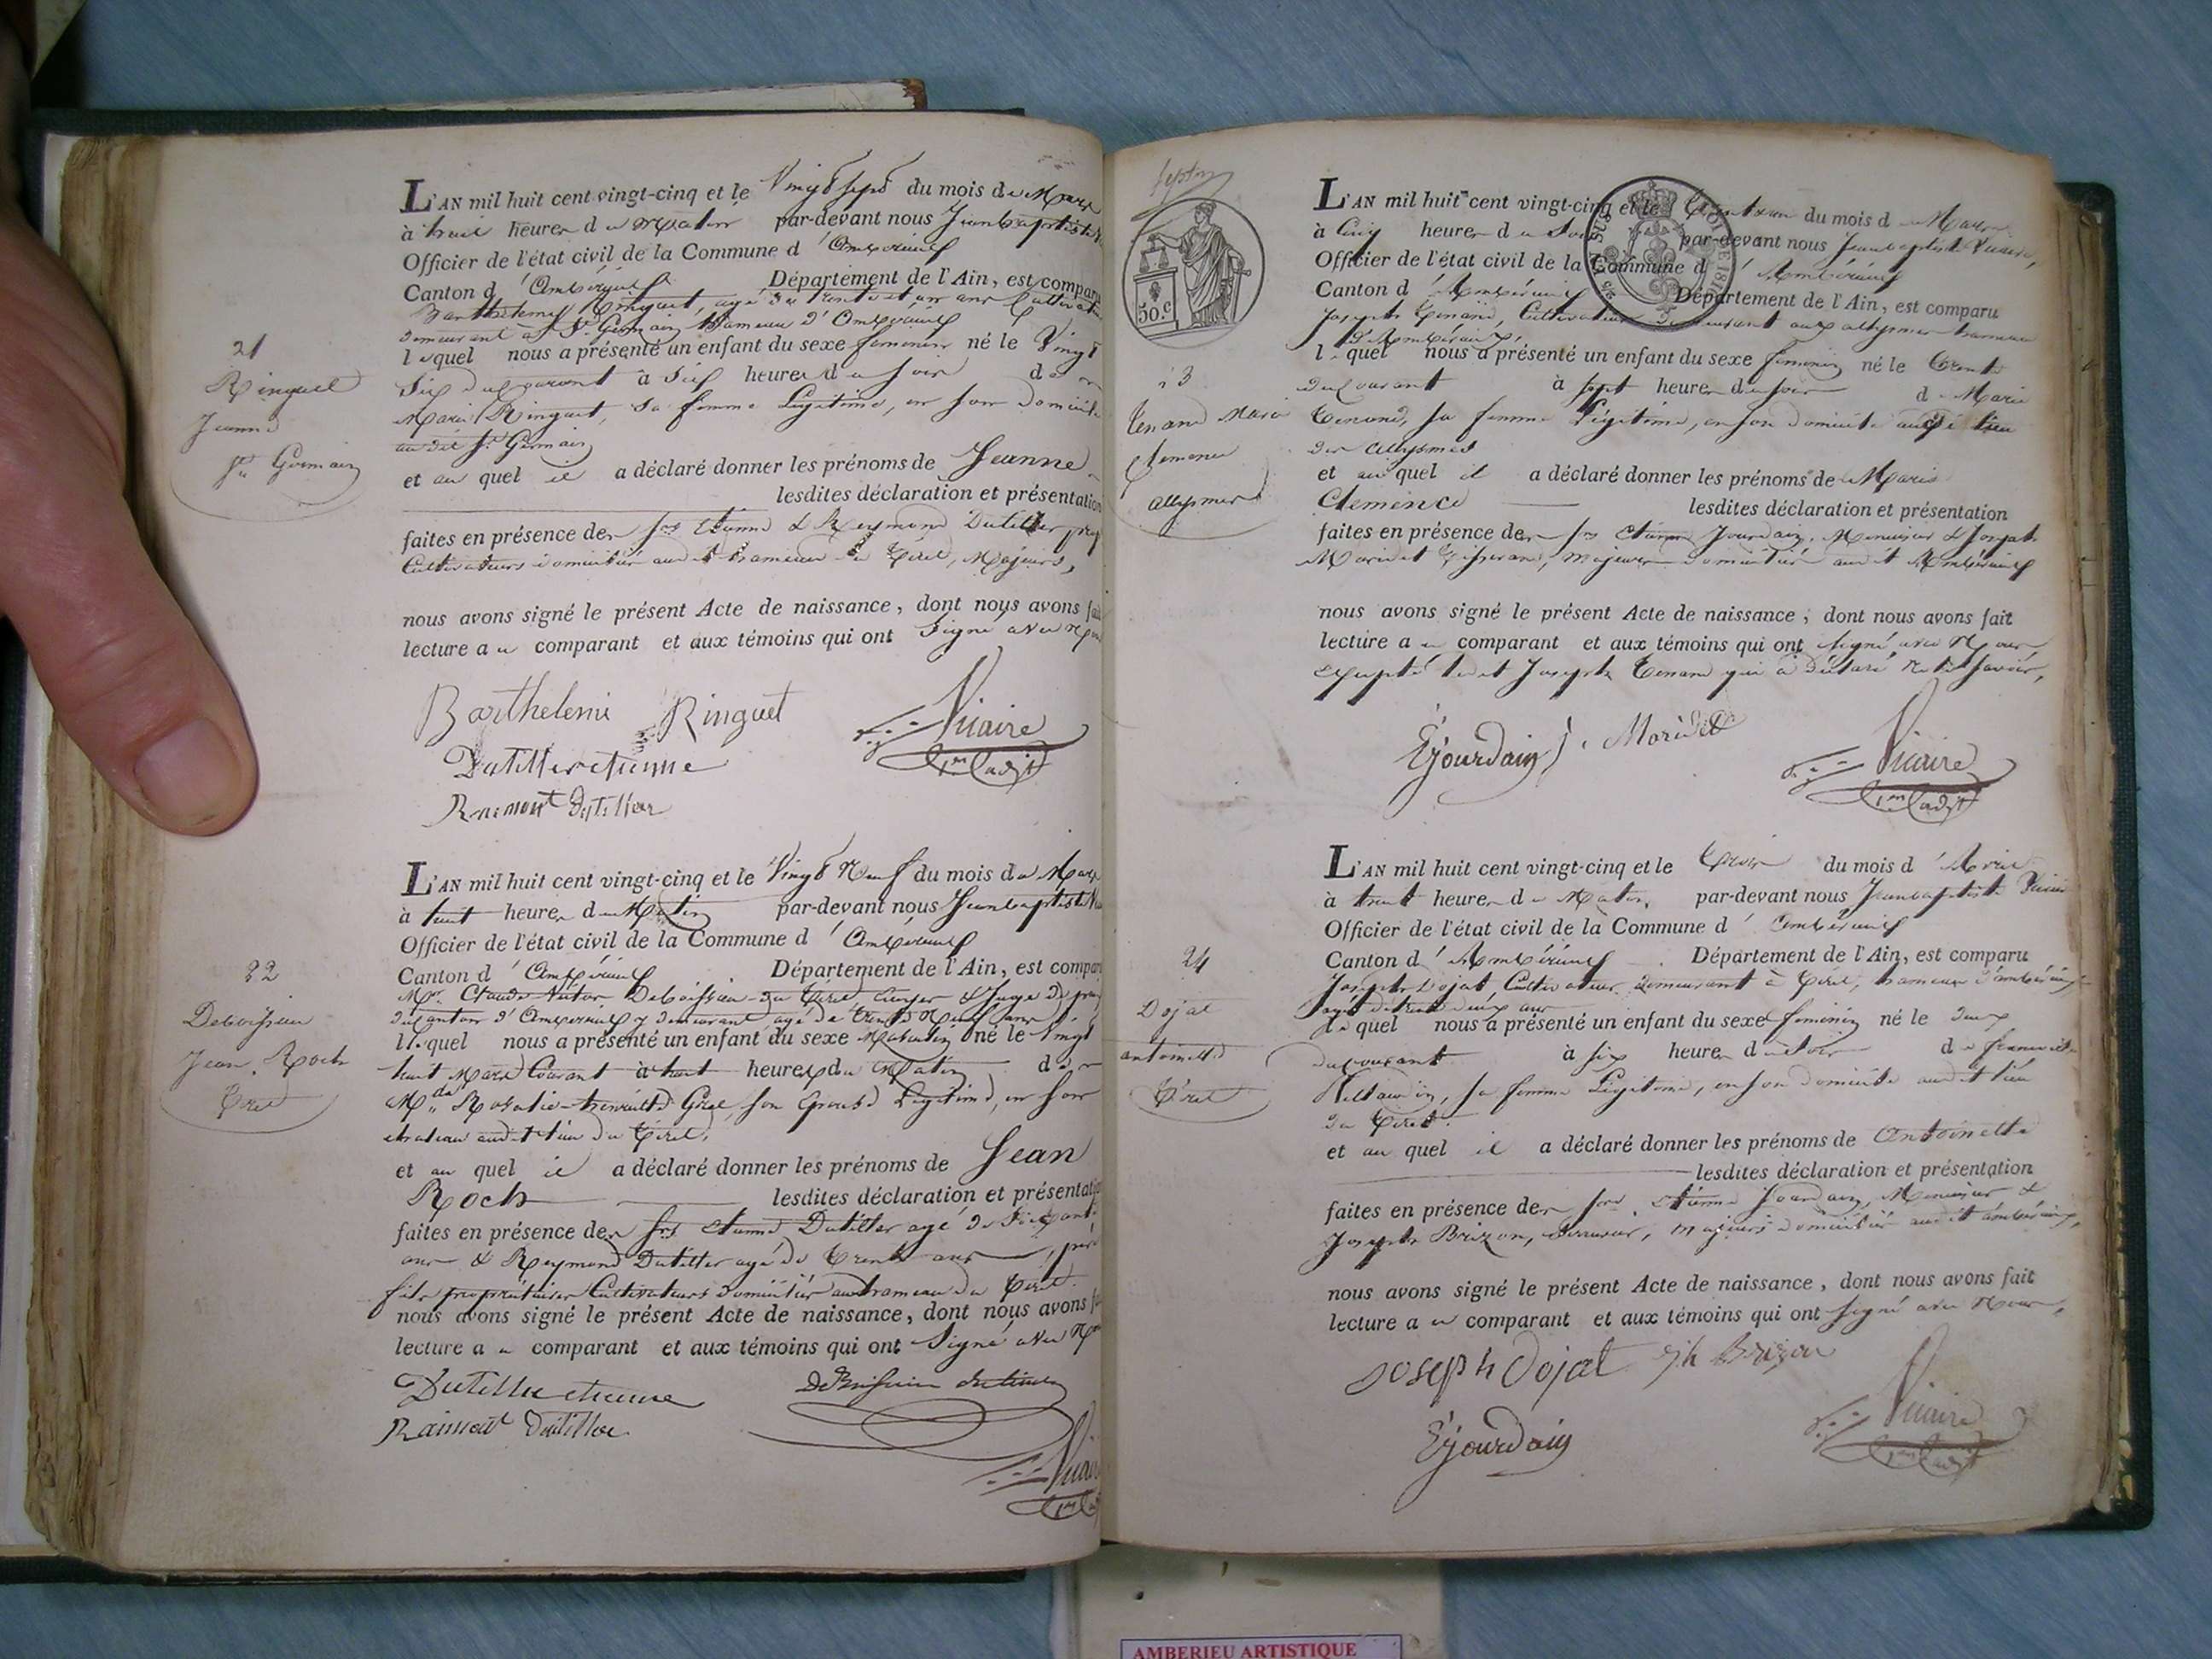 21
Ringuet
Jeanne
St Germain
L'AN mil huit cent vingt-cinq et le Vingt sept du mois de Mars
à huit heures du matin par-devant nous Jeanbaptiste
Officier de l'état civil de la Commune d'Ambérieux
Canton d'Ambérieux Département de l'Ain, est comparu
Barthelemy Ringuet, agé de trente et un ans Cultivateur
demeurant à St Germain hameau d'Ambérieux
lequel nous a présenté un enfant du sexe feminin né le Vingt
Six du courant à Six heures du soir de
Marie Ringuet, sa femme Légitime, en son domicile
au dit St Germain
et au quel il a déclaré donner les prénoms de Jeanne
lesdites déclaration et présentation
faites en présence des Srs Etienne & Reymond Dutiller
Cultivateurs domiciliés audit hameau du Tiret, Majeurs,
nous avons signé le présent Acte de naissance, dont nous avons fait
lecture au comparant et aux témoins qui ont Signé avec nous
Barthelemi Ringuet
Vicaire
Dutiller etienne
1er adjt
Raimont Dutiller
22
Deboissieu
Jean Roch
Tiret
L'AN mil huit cent vingt-cinq et le Vingt Neuf du mois de Mars
à huit heures du Matin par-devant nous Jeanbaptiste
Officier de l'état civil de la Commune d'Ambérieux
Canton d'Ambérieux Département de l'Ain, est comparu
Mr Claude Victor Deboissieu du Tiret, Juge de paix
du canton d'Ambérieux y demeurant agé de trente Neuf ans
lequel nous a présenté un enfant du sexe Masculin né le Vingt
huit Mars Courant à huit heures du Matin de
Mde Rosalie son Epouse Légitime, en son
chateau audit lieu du Tiret,
et au quel il a déclaré donner les prénoms de Jean
Roch lesdites déclaration et présentation
faites en présence des Srs Etienne Dutiller agé de Soixante
ans & Reymond Dutiller agé de Trente ans
fils propriétaires Cultivateurs domiciliés au hameau du Tiret
nous avons signé le présent Acte de naissance, dont nous avons
lecture au comparant et aux témoins qui ont Signé avec Nous
Dutiller etienne
Raimont Dutiller
Vicaire
50.c
23
Tenand Marie
Clemence
allymes
L'AN mil huit cent vingt-cinq et le trente un du mois de Mars
à Cinq heures du Soir par-devant nous Jeanbaptiste Vicaire,
Officier de l'état civil de la Commune d'Ambérieux
Canton d'Ambérieux Département de l'Ain, est comparu
Joseph Tenand, Cultivateur demeurant aux allymes hameau
d'Ambérieux,
lequel nous a présenté un enfant du sexe féminin né le trente
du Courant à sept heures du soir de Marie
Tenand, sa femme Légitime, en son domicile audit lieu
des allymes
et au quel il a déclaré donner les prénoms de Marie
Clemence lesdites déclaration et présentation
faites en présence des Srs Etienne Jourdain, Menuisier & Joseph
Moridet Tisserand, majeurs domiciliés audit Ambérieux
nous avons signé le présent Acte de naissance; dont nous avons fait
lecture au comparant et aux témoins qui ont signé avec Nous
excepté ledit Joseph Tenand qui a déclaré ne le savoir,
Ejourdain
J. Moridet
Vicaire
1er adjt
24
Dojat
antoinette
Tiret
L'AN mil huit cent vingt-cinq et le trois du mois d'Avril
à huit heures du Matin, par-devant nous Jeanbaptiste Vicaire
Officier de l'état civil de la Commune d'ambérieux
Canton d'Ambérieux Département de l'Ain, est comparu
Joseph Dojat, Cultivateur demeurant à Tiret, hameau d'ambérieux,
agé de trente deux ans
lequel nous a présenté un enfant du sexe féminin né le deux
du courant à six heures du soir de
sa femme Légitime, en son domicile audit lieu
du Tiret.
et au quel il a déclaré donner les prénoms de Antoinette
lesdites déclaration et présentation
faites en présence des Srs Etienne Jourdain, Menuisier &
Joseph Brizon, Serrurier, majeurs domiciliés audit ambérieux,
nous avons signé le présent Acte de naissance, dont nous avons fait
lecture au comparant et aux témoins qui ont signé avec Nous,
Joseph Dojat
jh Brizon
Ejourdain
Vicaire
1er adjt
AMBERIEU ARTISTIQUE